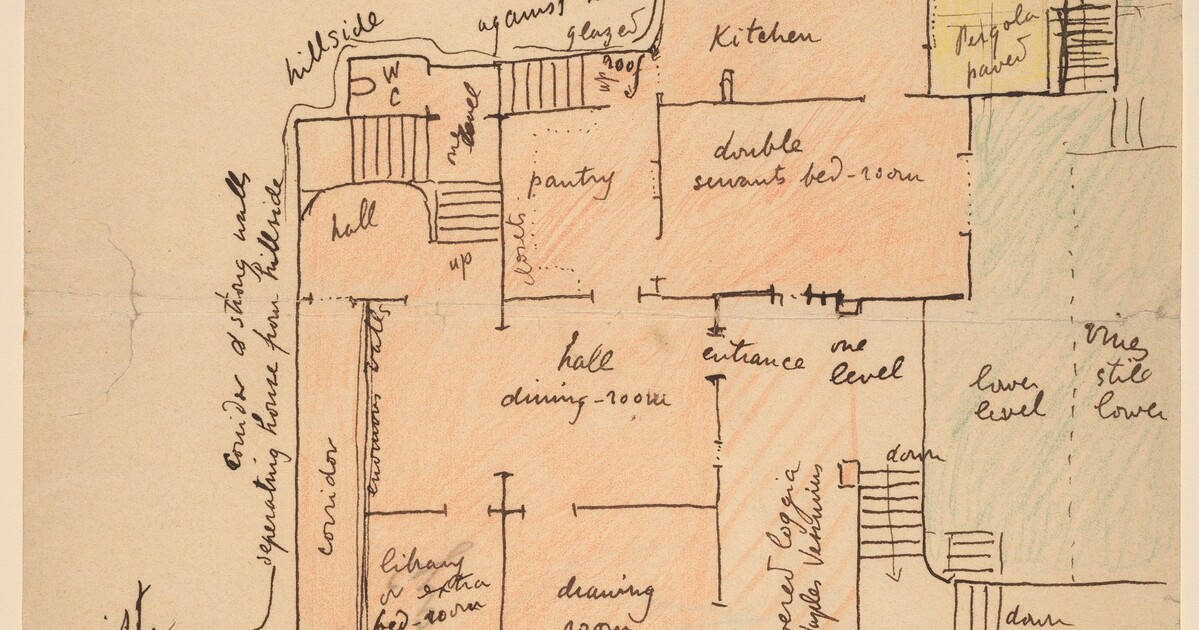 hillside
against
glazed
roof
up
Kitchen
Pergola
paved
W
C
one
level
double
servants bed-room
pantry
closets
hall
up
corridor & strong walls
seperating house from hillside
enormous walls
hall
dining-room
entrance
one
level
lower
level
vines
still
lower
down
corridor
library
or extra
bed-room
drawing
room
covered loggia
Naples Vesuvius
down